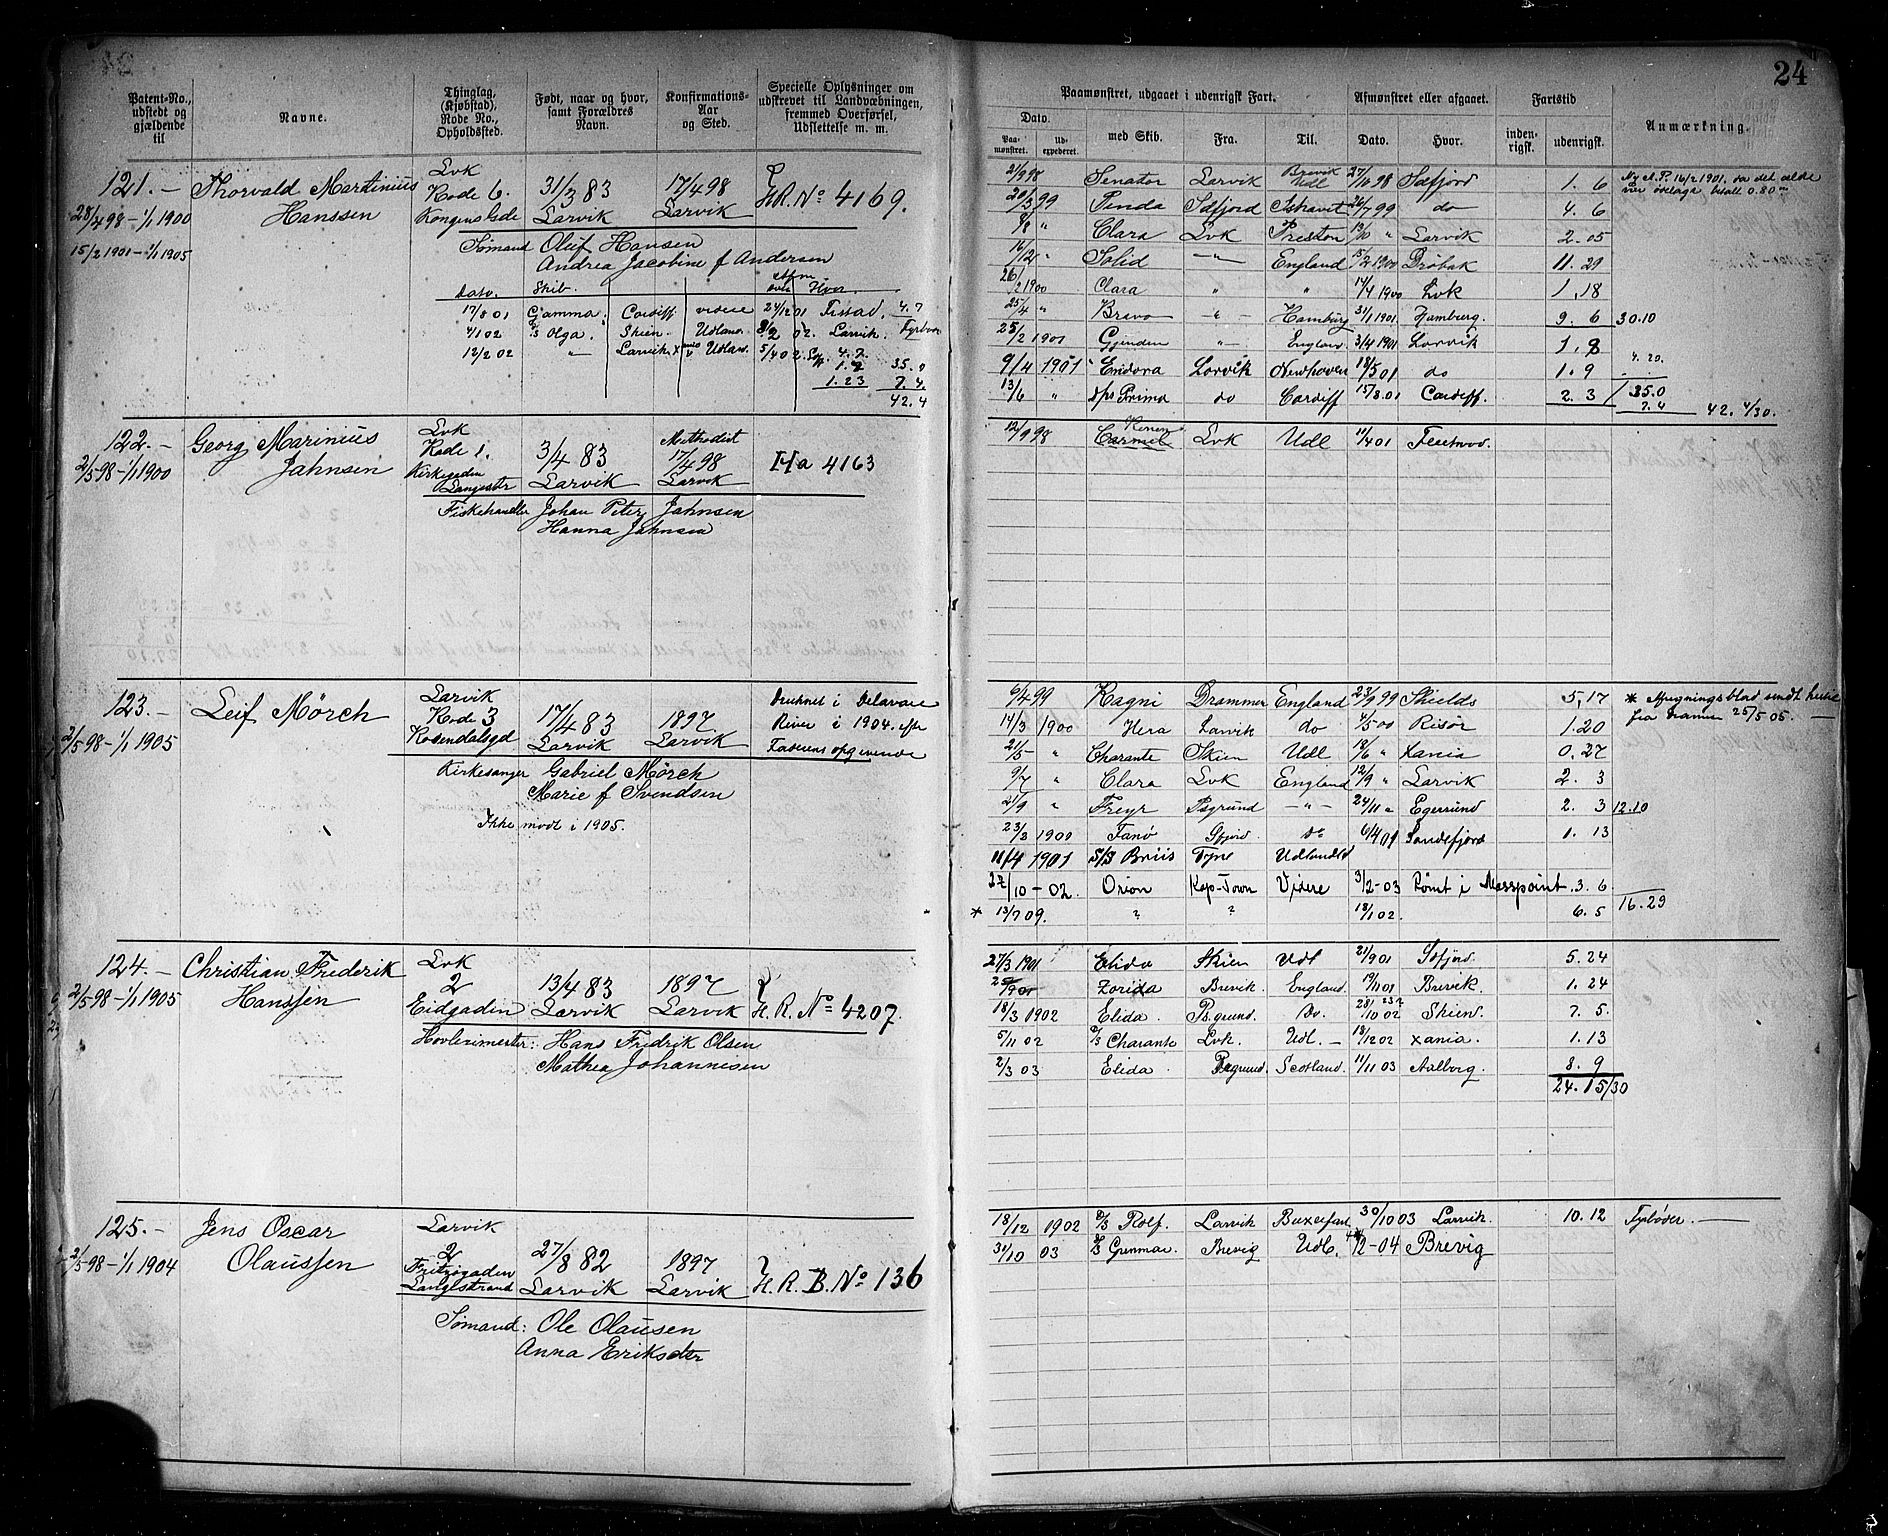 24
Patent-No., udstedt og gjældende til
Navne.
Thinglag, (Kjøbstad), Rode No., Opholdssted.
Født, naar og hvor, samt Forældres Navn.
Konfirmations-Aar og Sted.
Specielle Oplysninger om udskrevet til Landværbningen, fremmed Overførsel, Udslettelse m. m.
Paamønstret, udgaaet i udenrigsk Fart.
Afmønstret eller afgaaet.
Fartstid
Anmærkning.
Dato.
Paamønstret.
Udexpederet.
med Skib.
Fra.
Til.
Dato.
Hvor.
indenrigsk.
udenrigsk.
121.— Thorvald Martinius Hanssen
28/4 98 – 1/1 1900
15/2 1901 – 1/1 1905
Lvk Rode 6. Kongensgde
31/3 83 Larvik
17/4 98 Larvik
H.R. No 4169.
Sømand Oluf Hansen
Andrea Jacobine f Andersen
Dato. Skib. Hvor
17/8 01 Gamma Cardiff videre 24/12 01 4.7
4/1 02 Olga Skien Udland 8/2 02. Larvik. Fyrbøder
12/2 02 — " — Larvik Udland. 5/4 02 4.7
1.7 35.0
1.23 7.4
42.4
21/9 98 Senator Larvik Brevik Udl 27/10 98 Sdfjord 1. 6
20/3 99 Tinda Sdfjord 26/7 99 do 4. 6
8/8 " Clara Lvk Preston 13/10 " Larvik 2. 05
16/12 " Solid — " — England 15/2 1900 Drøbak 11. 29
26/2 1900 Clara " " 17/4 1900 Lvk 1,18
25/4 " Bravo — " — Hamburg 31/1 1901 Hamburg. 9. 6 30.10
25/2 1901 Gjenden — " — England 3/4 1901 Larvik 1. 8
9/4 1901 Endora Larvik Newhaven 18/5 01 do 1. 9 4. 20.
13/6 " Prima do Cardiff 15/8 01 Cardiff. 2. 3 35.0
7.4 — 42. 4/30.
122.— Georg Marinius Jahnsen
2/5 98 – 1/1 1900
Lvk Rode 1. Kirkegaden Langestr
3/4 83 Larvik
Methodist 17/4 98 Larvik
Ha 4163
Fiskehandler Johan Peter Jahnsen
Hanna Jahnsen
12/9 98 Carmel Lvk Udl 11/4 01
123.— Leif Mörch
2/5 98 – 1/1 1905
Larvik Rode 3 Rosendalsgd
17/4 83 Larvik
1897 Larvik
Druknet i Delavare River i 1904. efter Faderens opgivende
Kirkesanger Gabriel Mörch
Marie f Svendsen
Ikke mødt i 1905.
6/4 99 Ragni Drammen England 23/9 99 Shields 5,17
14/3 1900 Hera Larvik do 4/5 00 Risör 1.20
21/5 " Charante Skien Udl 18/6 " Xania 0.27
9/7 " Clara Lvk England 12/9 " Larvik 2. 3
21/9 " Freyr Psgrund — " — 24/11 " Egersund 2. 3 12.10
23/2 1900 Fanö Sfjord Do 6/4 01 Sandefjord 1. 13
11/4 1901 S/S Briis Tyne Udlandet
27/10 – 02 Orion Kap-Town Videre 3/2 - 03 Rømt i Mosspoint. 3. 6
* 13/7 09. ? ? 18/1 02. 6. 5 16.29
* Afregningsblad sendt hertil fra 25/5 05. —
124.— Christian Frederik Hanssen
2/5 98 – 1/1 1905
Lvk 2 Eidgaden
13/4 83 Larvik
1897 Larvik
H. R. No 4207.
Hans Fredrik Olsen
Mathea Johannesen
27/3 1901 Elida Skien Udl 21/9 01 Sdfjord 5. 24
Zorida Brevik. England. 19/11 01 Brevik. 1. 24
18/3 1902 Elida. Ps.grund. Do. 28/10 02 Skien. 7. 5.
5/11 02 Charante Lvk. Udl. — 18/12 02 Xania. 1. 13
2/3 03 Elida. Psgrund. Scotland. 11/11 03 Aalborg. 8. 9
24. 15/30
125.— Jens Oscar Olaussen
2/5 98 – 1/1 1904
Larvik 2 Fritzøgaden Langestrand
27/8 82 Larvik
1897 Larvik
H. R. B. No 136
Sømand: Ole Olausen
Anna Eriksdtr
18/12 1902 Rolf. Larvik 30/10 03 Larvik. 10. 12 Fyrbøder. —
31/10 03 Gunmar. Brevig Udl. 4/2 - 04 Brevig